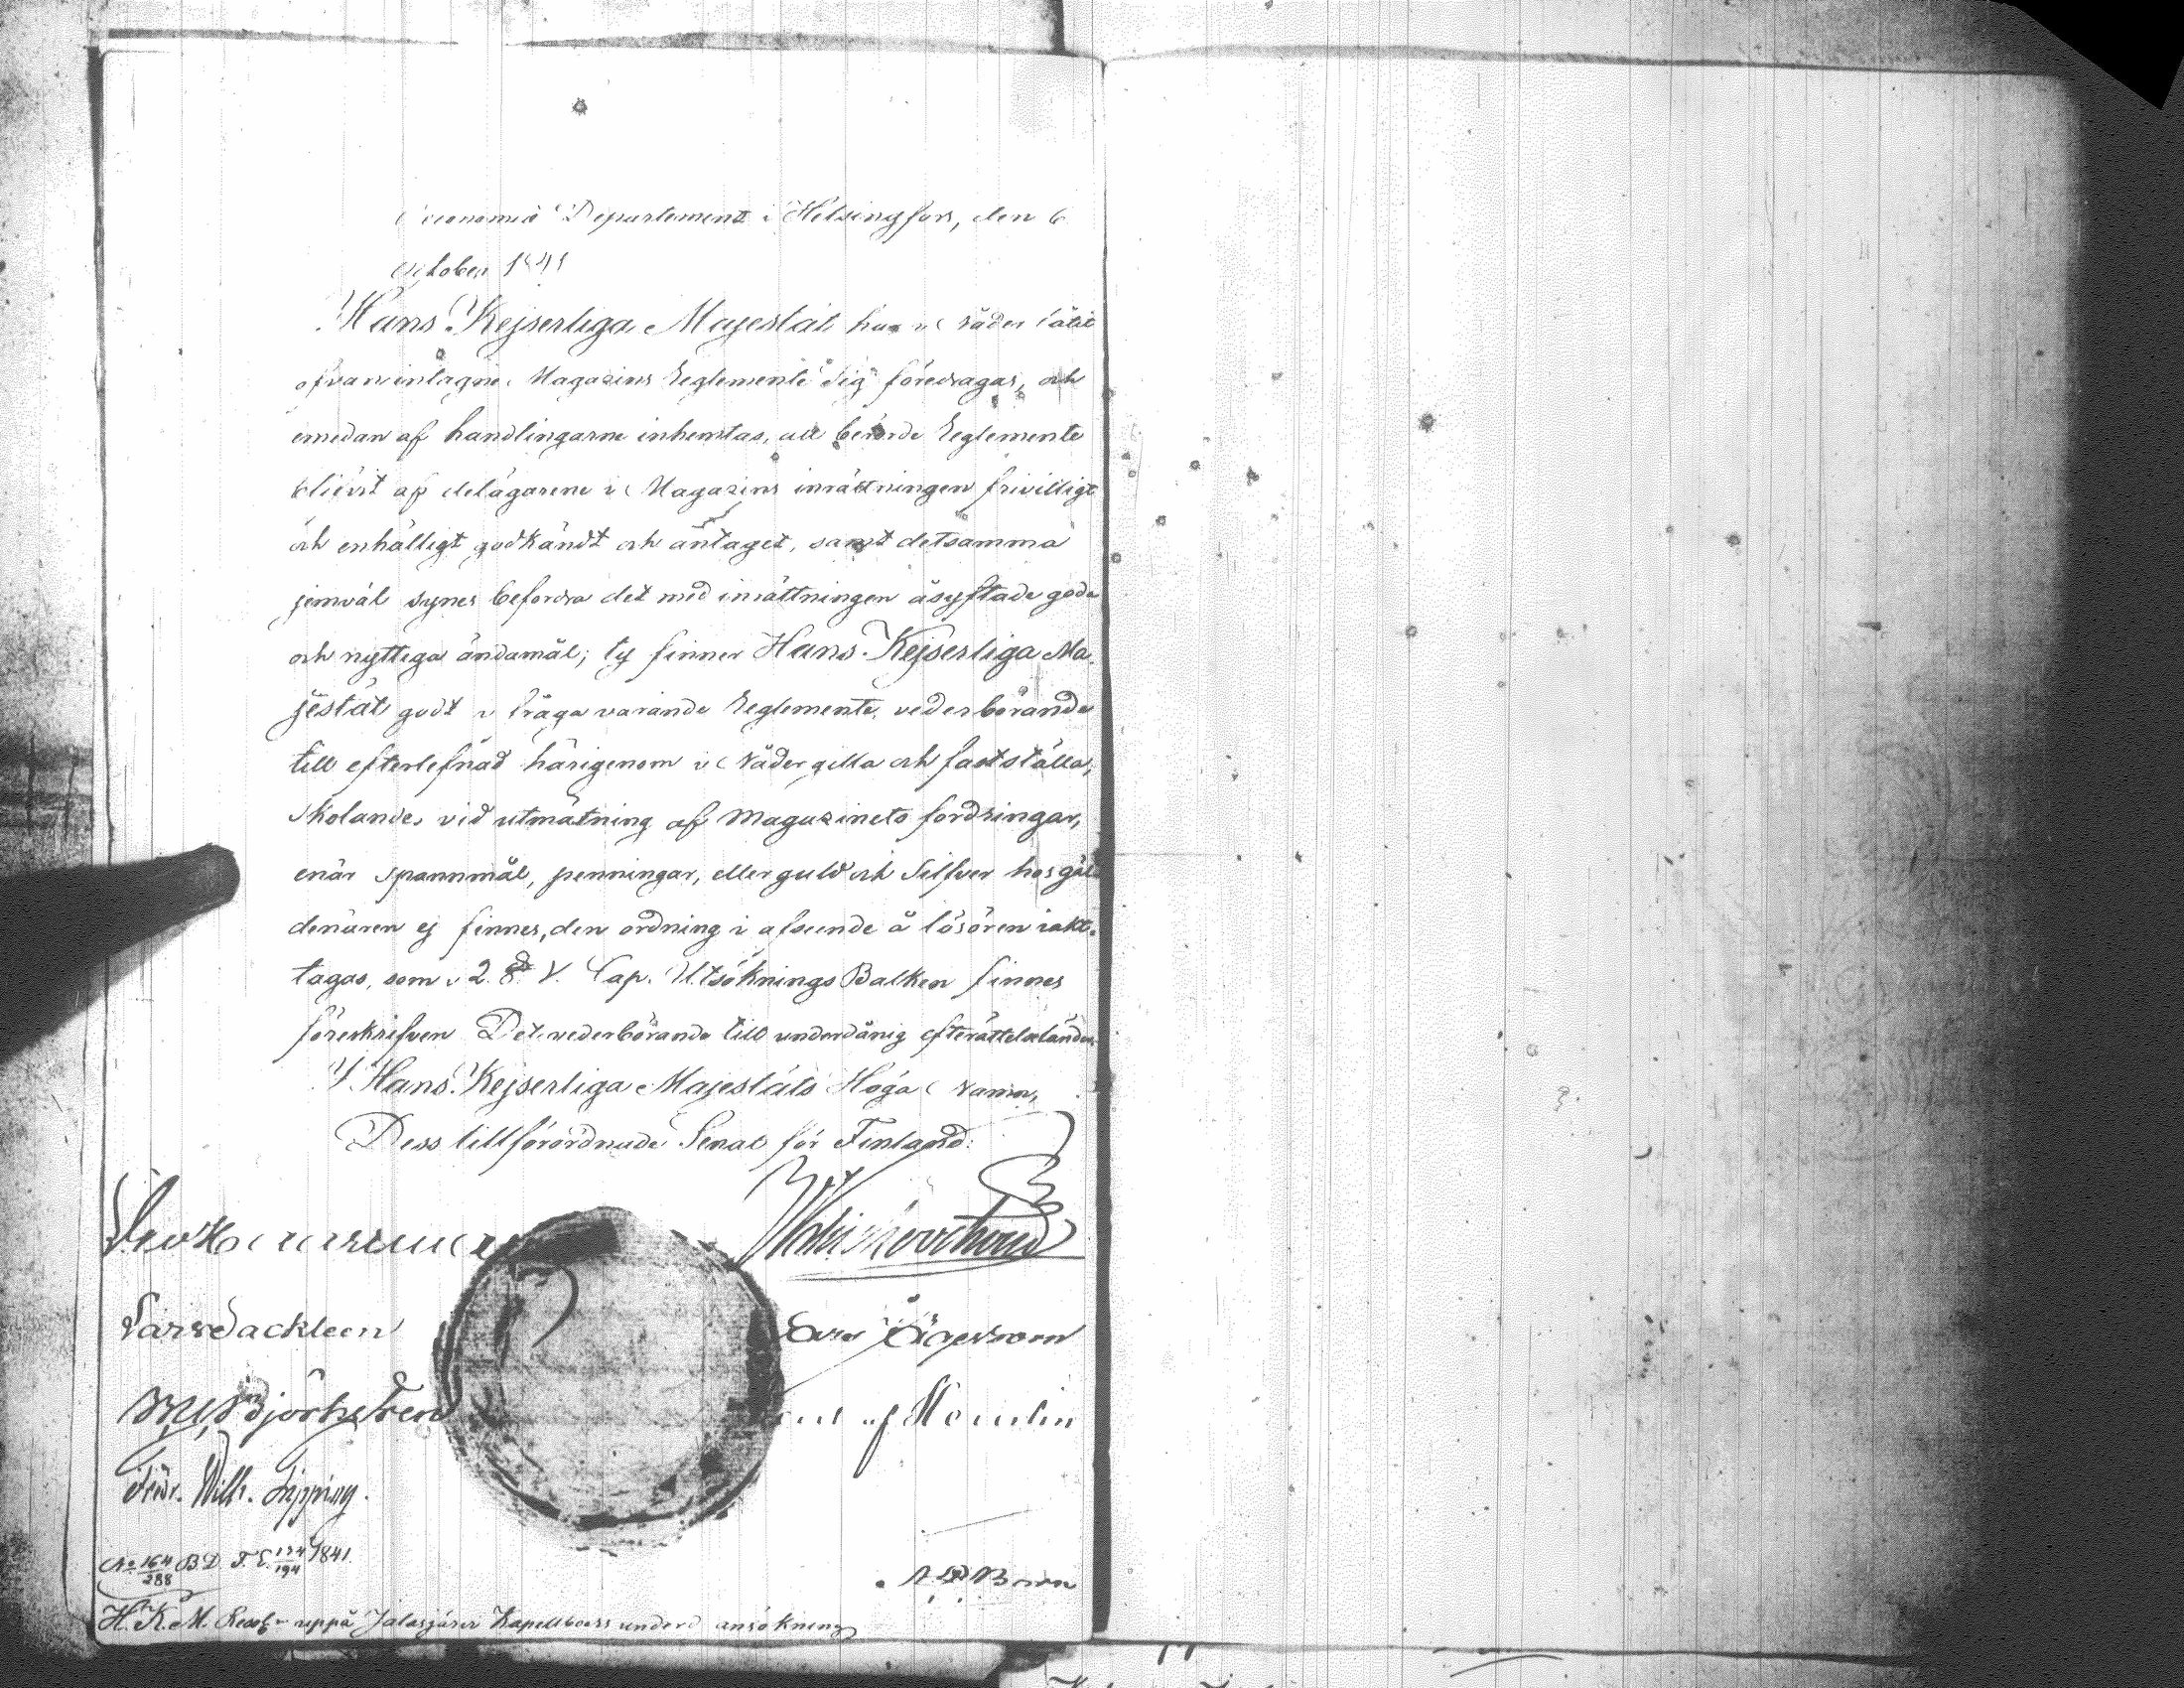 Economie Departement i Helsingfors, den 6
October 1841
Hans Kejserliga Majestät har i Nåder låtit
ofvanintagne Magazins Reglemente Sig föredragas, och
emedan af handlingarne inhemtas, att berörde Reglemente
blifvit af delägarene i Magazins inrättningen frivilligt
och enhälligt godkändt och antaget, samt detsamma
jemväl synes befordra det med inrättningen åsyftade goda
och nyttiga ändamål; ty finner Hans Kejserliga Ma-
jestät godt i fråga varande Reglemente, vederbörande
till efterlefnad härigenom i Nåder gilla och fastställa,
skolandes vid utmätning af Magazinets fordringar,
enär Spannmål, penningar, eller guld och Silfver hos gäl-
denären ej finnes, den ordning i afseende å lösören iakt-
tagas, som i 2. §. V. Cap. Utsöknings Balken finnes
föreskrifven Det vederbörande till underdånig efterrättelse länder.
I Hans Kejserliga Majestäts Höga Namn,
Dess tillförordnade Senat för Finland:
Lars Sackleen
Björksten
Wilh. Pipping.
af Homelin
Born
No 164/288 B.D. F.E. 134/194 1841.
H. K. M. Resol:n uppå Jalasjärvi Kapellboers underd ansökning